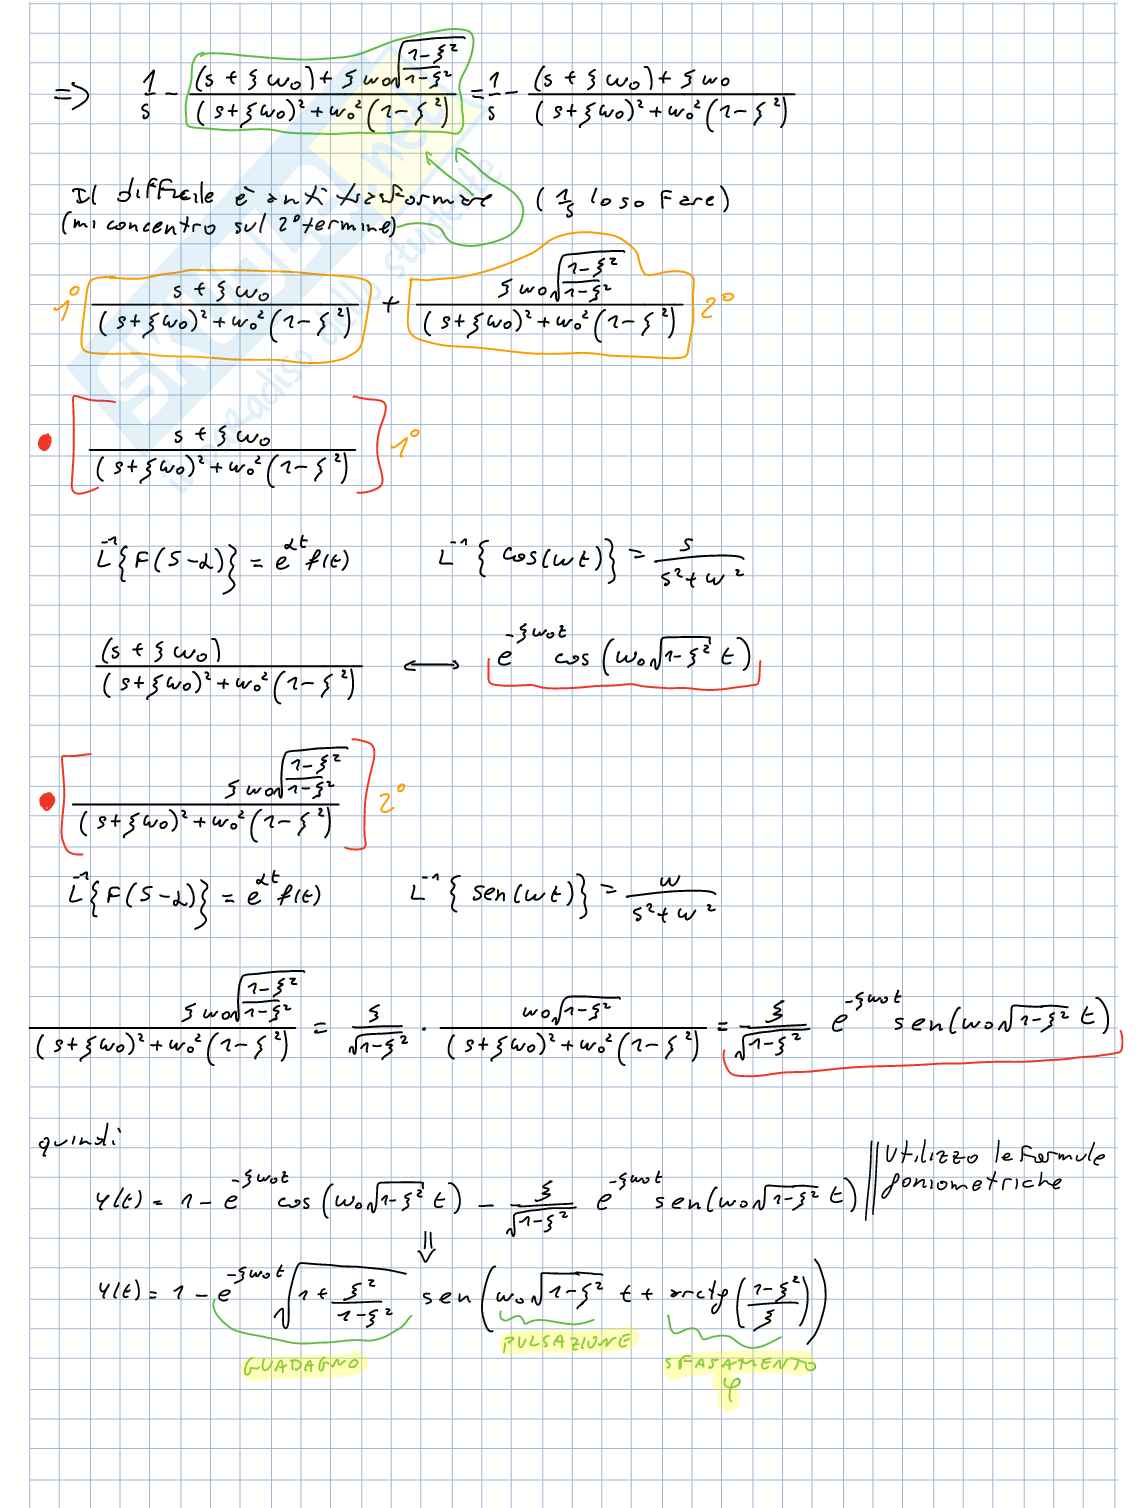 => 1/s - ((s + ξω₀) + ξω₀√((1-ξ²)/(1-ξ²)))/((s+ξω₀)² + ω₀²(1-ξ²)) = 1/s - ((s + ξω₀) + ξω₀)/((s+ξω₀)² + ω₀²(1-ξ²))
Il difficile è anti trasformare (1/s lo so fare)
(mi concentro sul 2° termine)
1° (s + ξω₀)/((s+ξω₀)² + ω₀²(1-ξ²)) + (ξω₀√((1-ξ²)/(1-ξ²)))/((s+ξω₀)² + ω₀²(1-ξ²)) 2°
• [(s + ξω₀)/((s+ξω₀)² + ω₀²(1-ξ²))] 1°
L⁻¹{F(S-α)} = e^(αt) f(t) L⁻¹{cos(ωt)} = s/(s²+ω²)
(s + ξω₀)/((s+ξω₀)² + ω₀²(1-ξ²)) ⟷ e^(-ξω₀t) cos(ω₀√(1-ξ²) t)
• [(ξω₀√((1-ξ²)/(1-ξ²)))/((s+ξω₀)² + ω₀²(1-ξ²))] 2°
L⁻¹{F(S-α)} = e^(αt) f(t) L⁻¹{sen(ωt)} = ω/(s²+ω²)
(ξω₀√((1-ξ²)/(1-ξ²)))/((s+ξω₀)² + ω₀²(1-ξ²)) = ξ/√(1-ξ²) · (ω₀√(1-ξ²))/((s+ξω₀)² + ω₀²(1-ξ²)) = ξ/√(1-ξ²) e^(-ξω₀t) sen(ω₀√(1-ξ²) t)
quindi
Y(t) = 1 - e^(-ξω₀t) cos(ω₀√(1-ξ²) t) - ξ/√(1-ξ²) e^(-ξω₀t) sen(ω₀√(1-ξ²) t) || Utilizzo le formule goniometriche
⇓
Y(t) = 1 - e^(-ξω₀t) √(1 + ξ²/(1-ξ²)) sen(ω₀√(1-ξ²) t + arctg((1-ξ²)/ξ))
GUADAGNO PULSAZIONE SFASAMENTO
φ